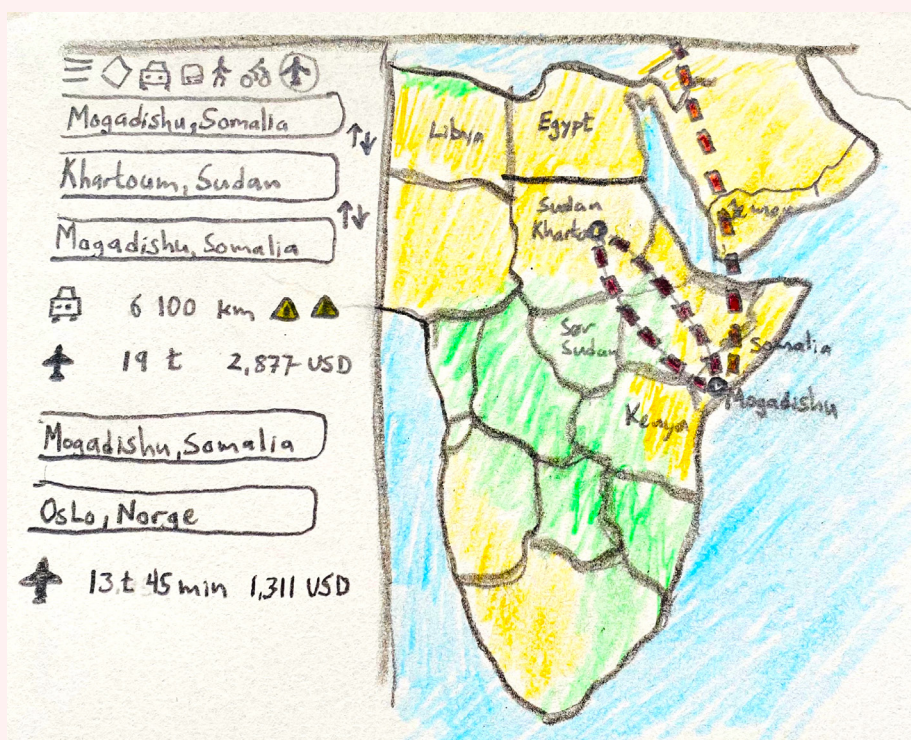 Mogadishu, Somalia
Khartoum, Sudan
Mogadishu, Somalia
6 100 km
19 t 2,877 USD
Mogadishu, Somalia
Oslo, Norge
13 t 45 min 1,311 USD
Libya
Egypt
Sudan
Yemen
Sør
Sudan
Somalia
Kenya
Mogadishu